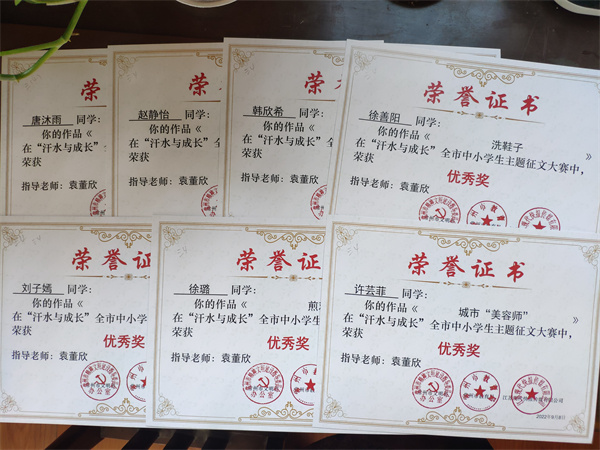 荣
唐沐雨 同学：
你的作品《
在“汗水与成长”
荣获
指导老师：袁董欣
荣
赵静怡 同学：
你的作品《
在“汗水与成长”全
荣获
指导老师：袁董欣
荣
韩欣希 同学：
你的作品《
在“汗水与成长”
荣获
指导老师：袁董欣
荣誉证书
徐善阳 同学：
你的作品《 洗鞋子 》
在“汗水与成长”全市中小学生主题征文大赛中，
荣获
优秀奖
指导老师：袁董欣
荣誉证
刘子嫣 同学：
你的作品《
在“汗水与成长”全市中小学生
荣获
优秀奖
指导老师：袁董欣
办公室
荣誉证
徐璐 同学：
你的作品《 煎
在“汗水与成长”全市中小学生
荣获
优秀奖
指导老师：袁董欣
办公室
荣誉证书
许芸菲 同学：
你的作品《 城市“美容师” 》
在“汗水与成长”全市中小学生主题征文大赛中，
荣获
优秀奖
指导老师：袁董欣
办公室
2022年9月8日